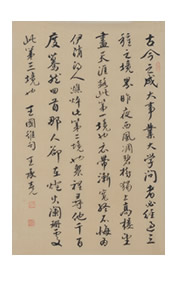 古今之成大事業大學問者必經過三
種之境界昨夜西風凋碧樹獨上高樓望
盡天涯路此第一境也衣帶漸寬終不悔為
伊消得人憔悴此第二境也眾裡尋他千百
度驀然回首那人卻在燈火闌珊處
此第三境也 王國維句